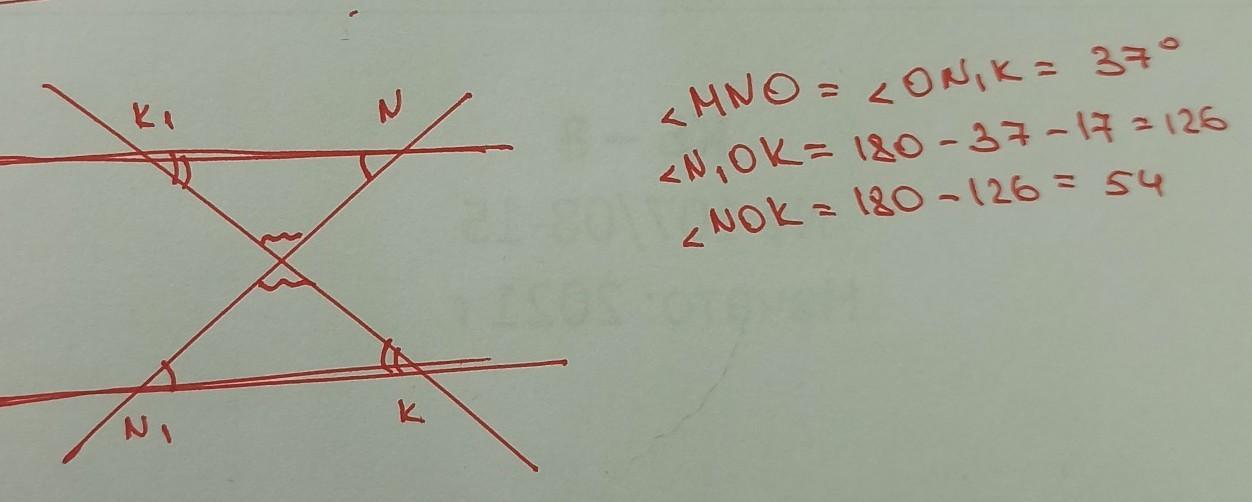 K₁
N
N₁
K
∠MNO = ∠ON₁K = 37°
∠N₁OK = 180 - 37 - 17 = 126
∠NOK = 180 - 126 = 54